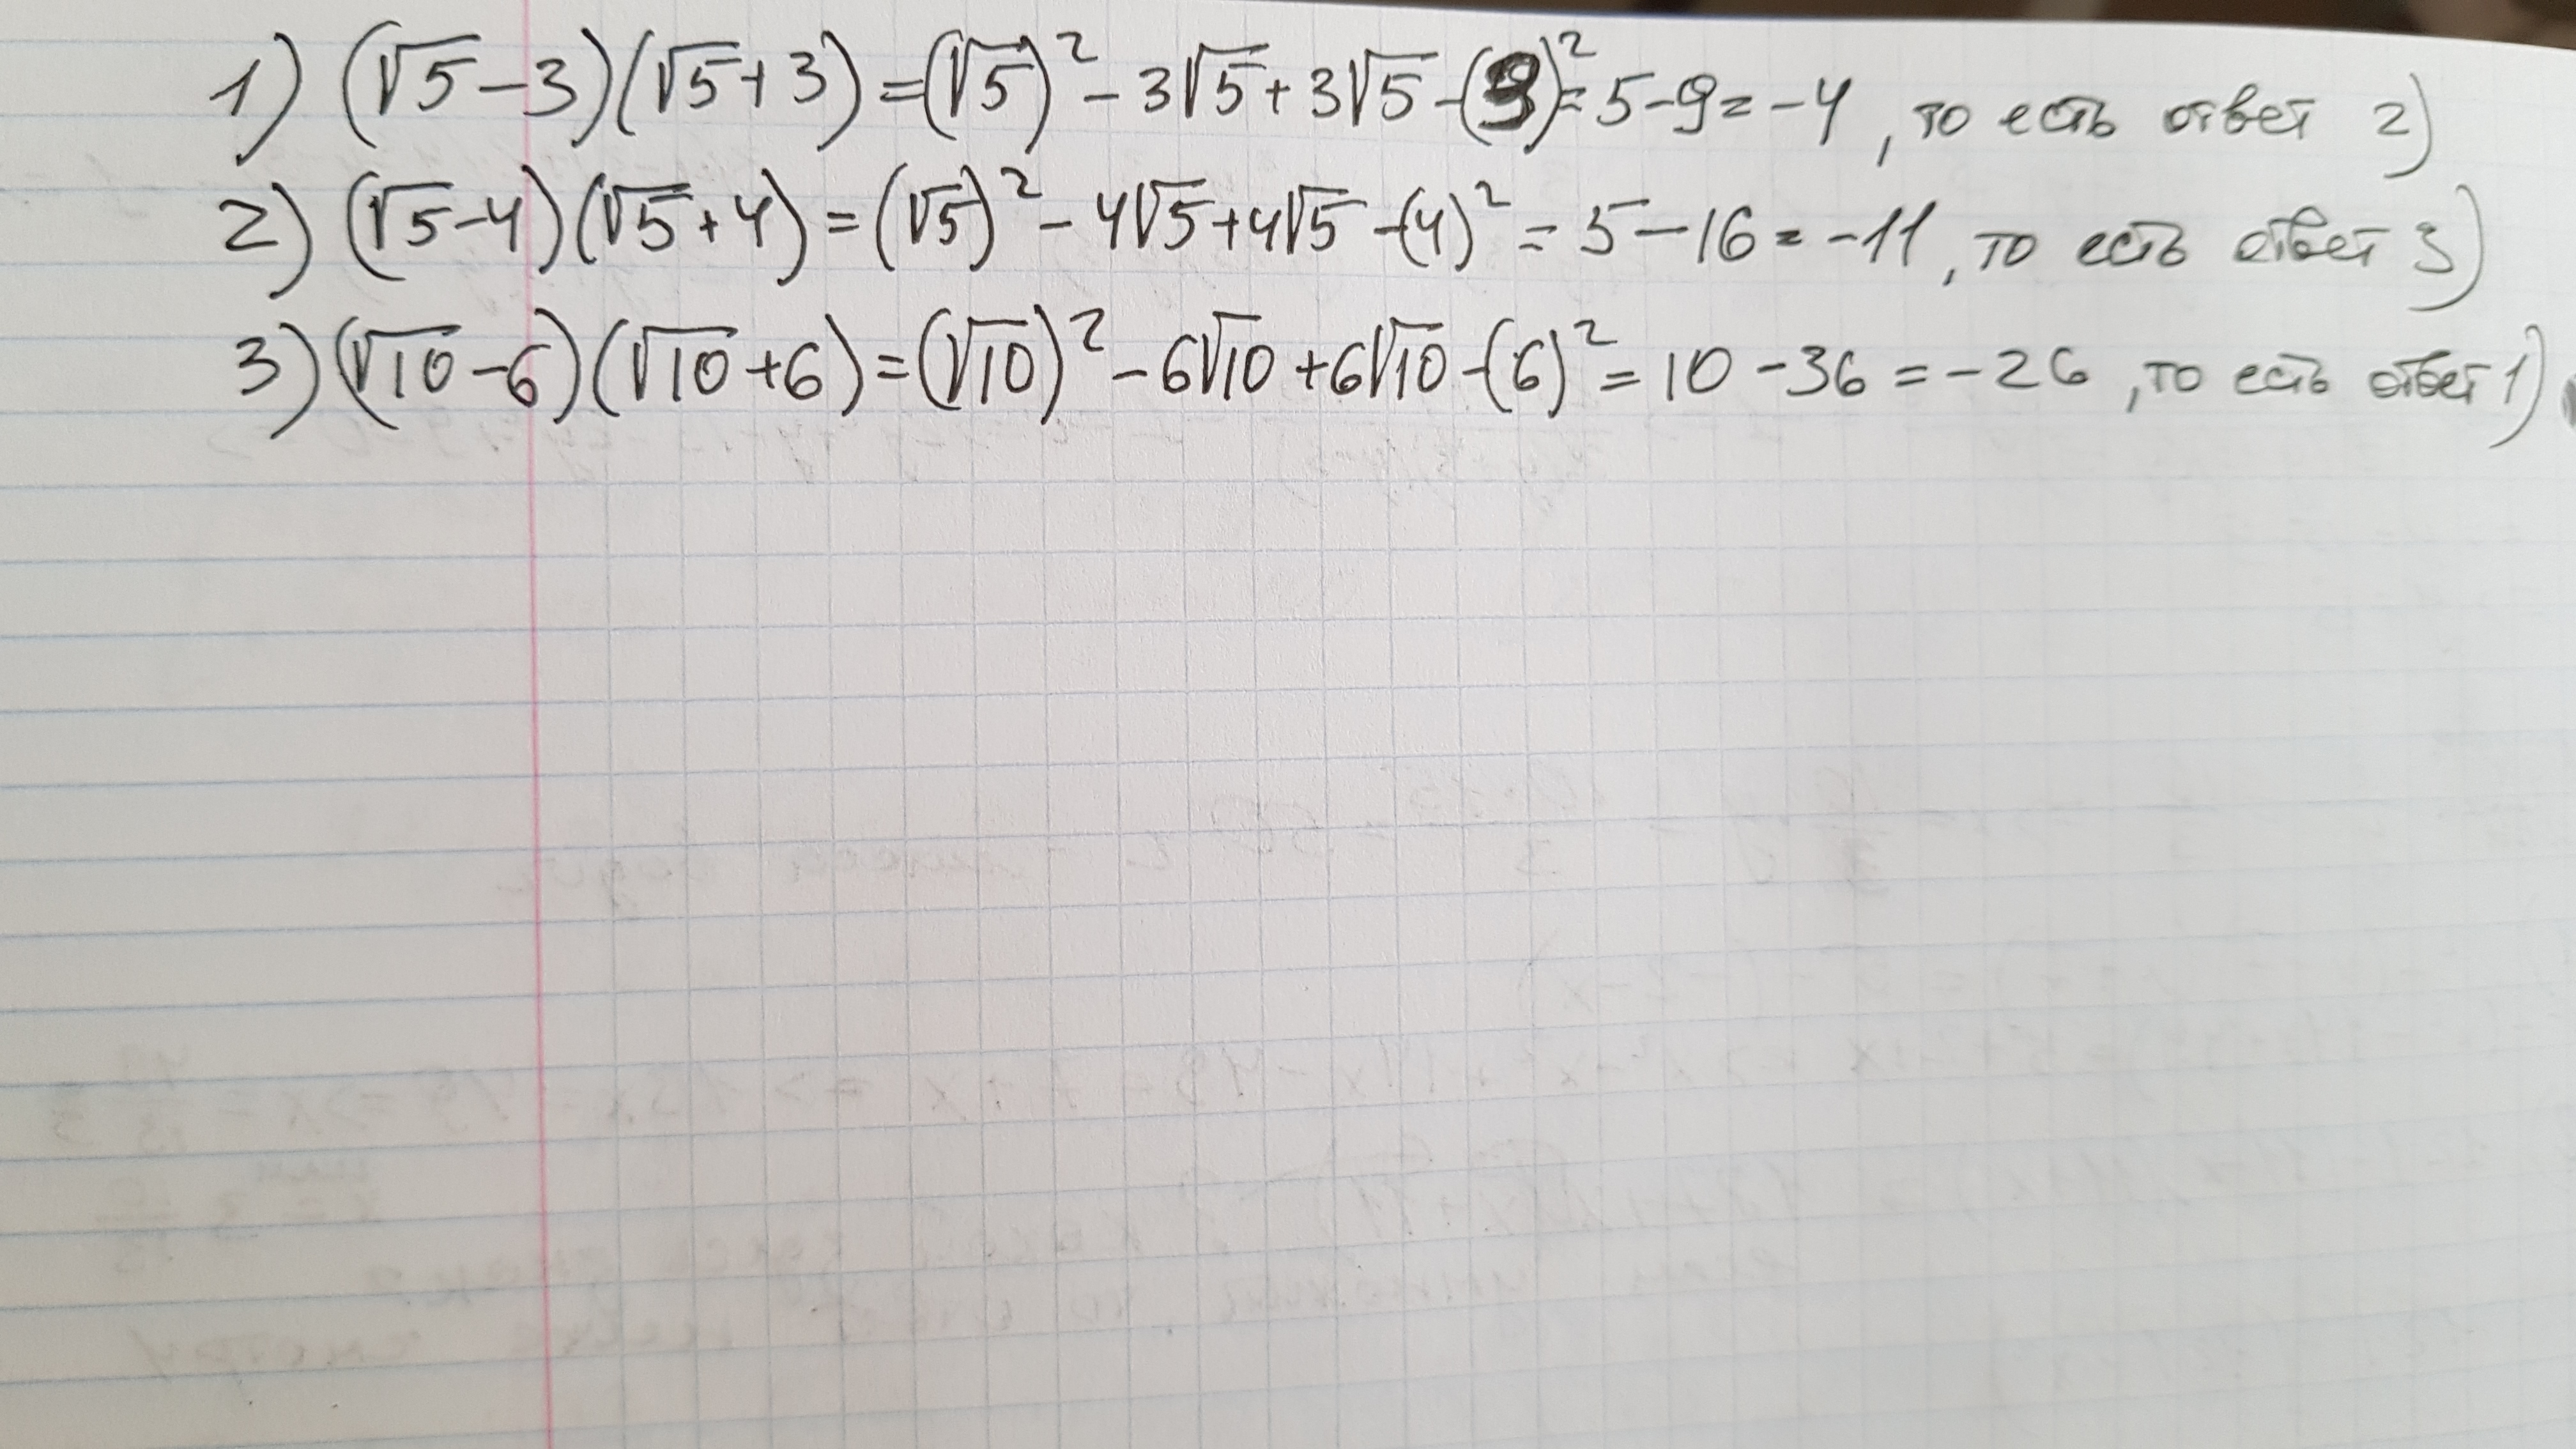 1) (√5-3)(√5+3)=(√5)²-3√5+3√5-(3)²=5-9=-4, то есть ответ 2)
2) (√5-4)(√5+4)=(√5)²-4√5+4√5-(4)²=5-16=-11, то есть ответ 3)
3) (√10-6)(√10+6)=(√10)²-6√10+6√10-(6)²=10-36=-26, то есть ответ 1)